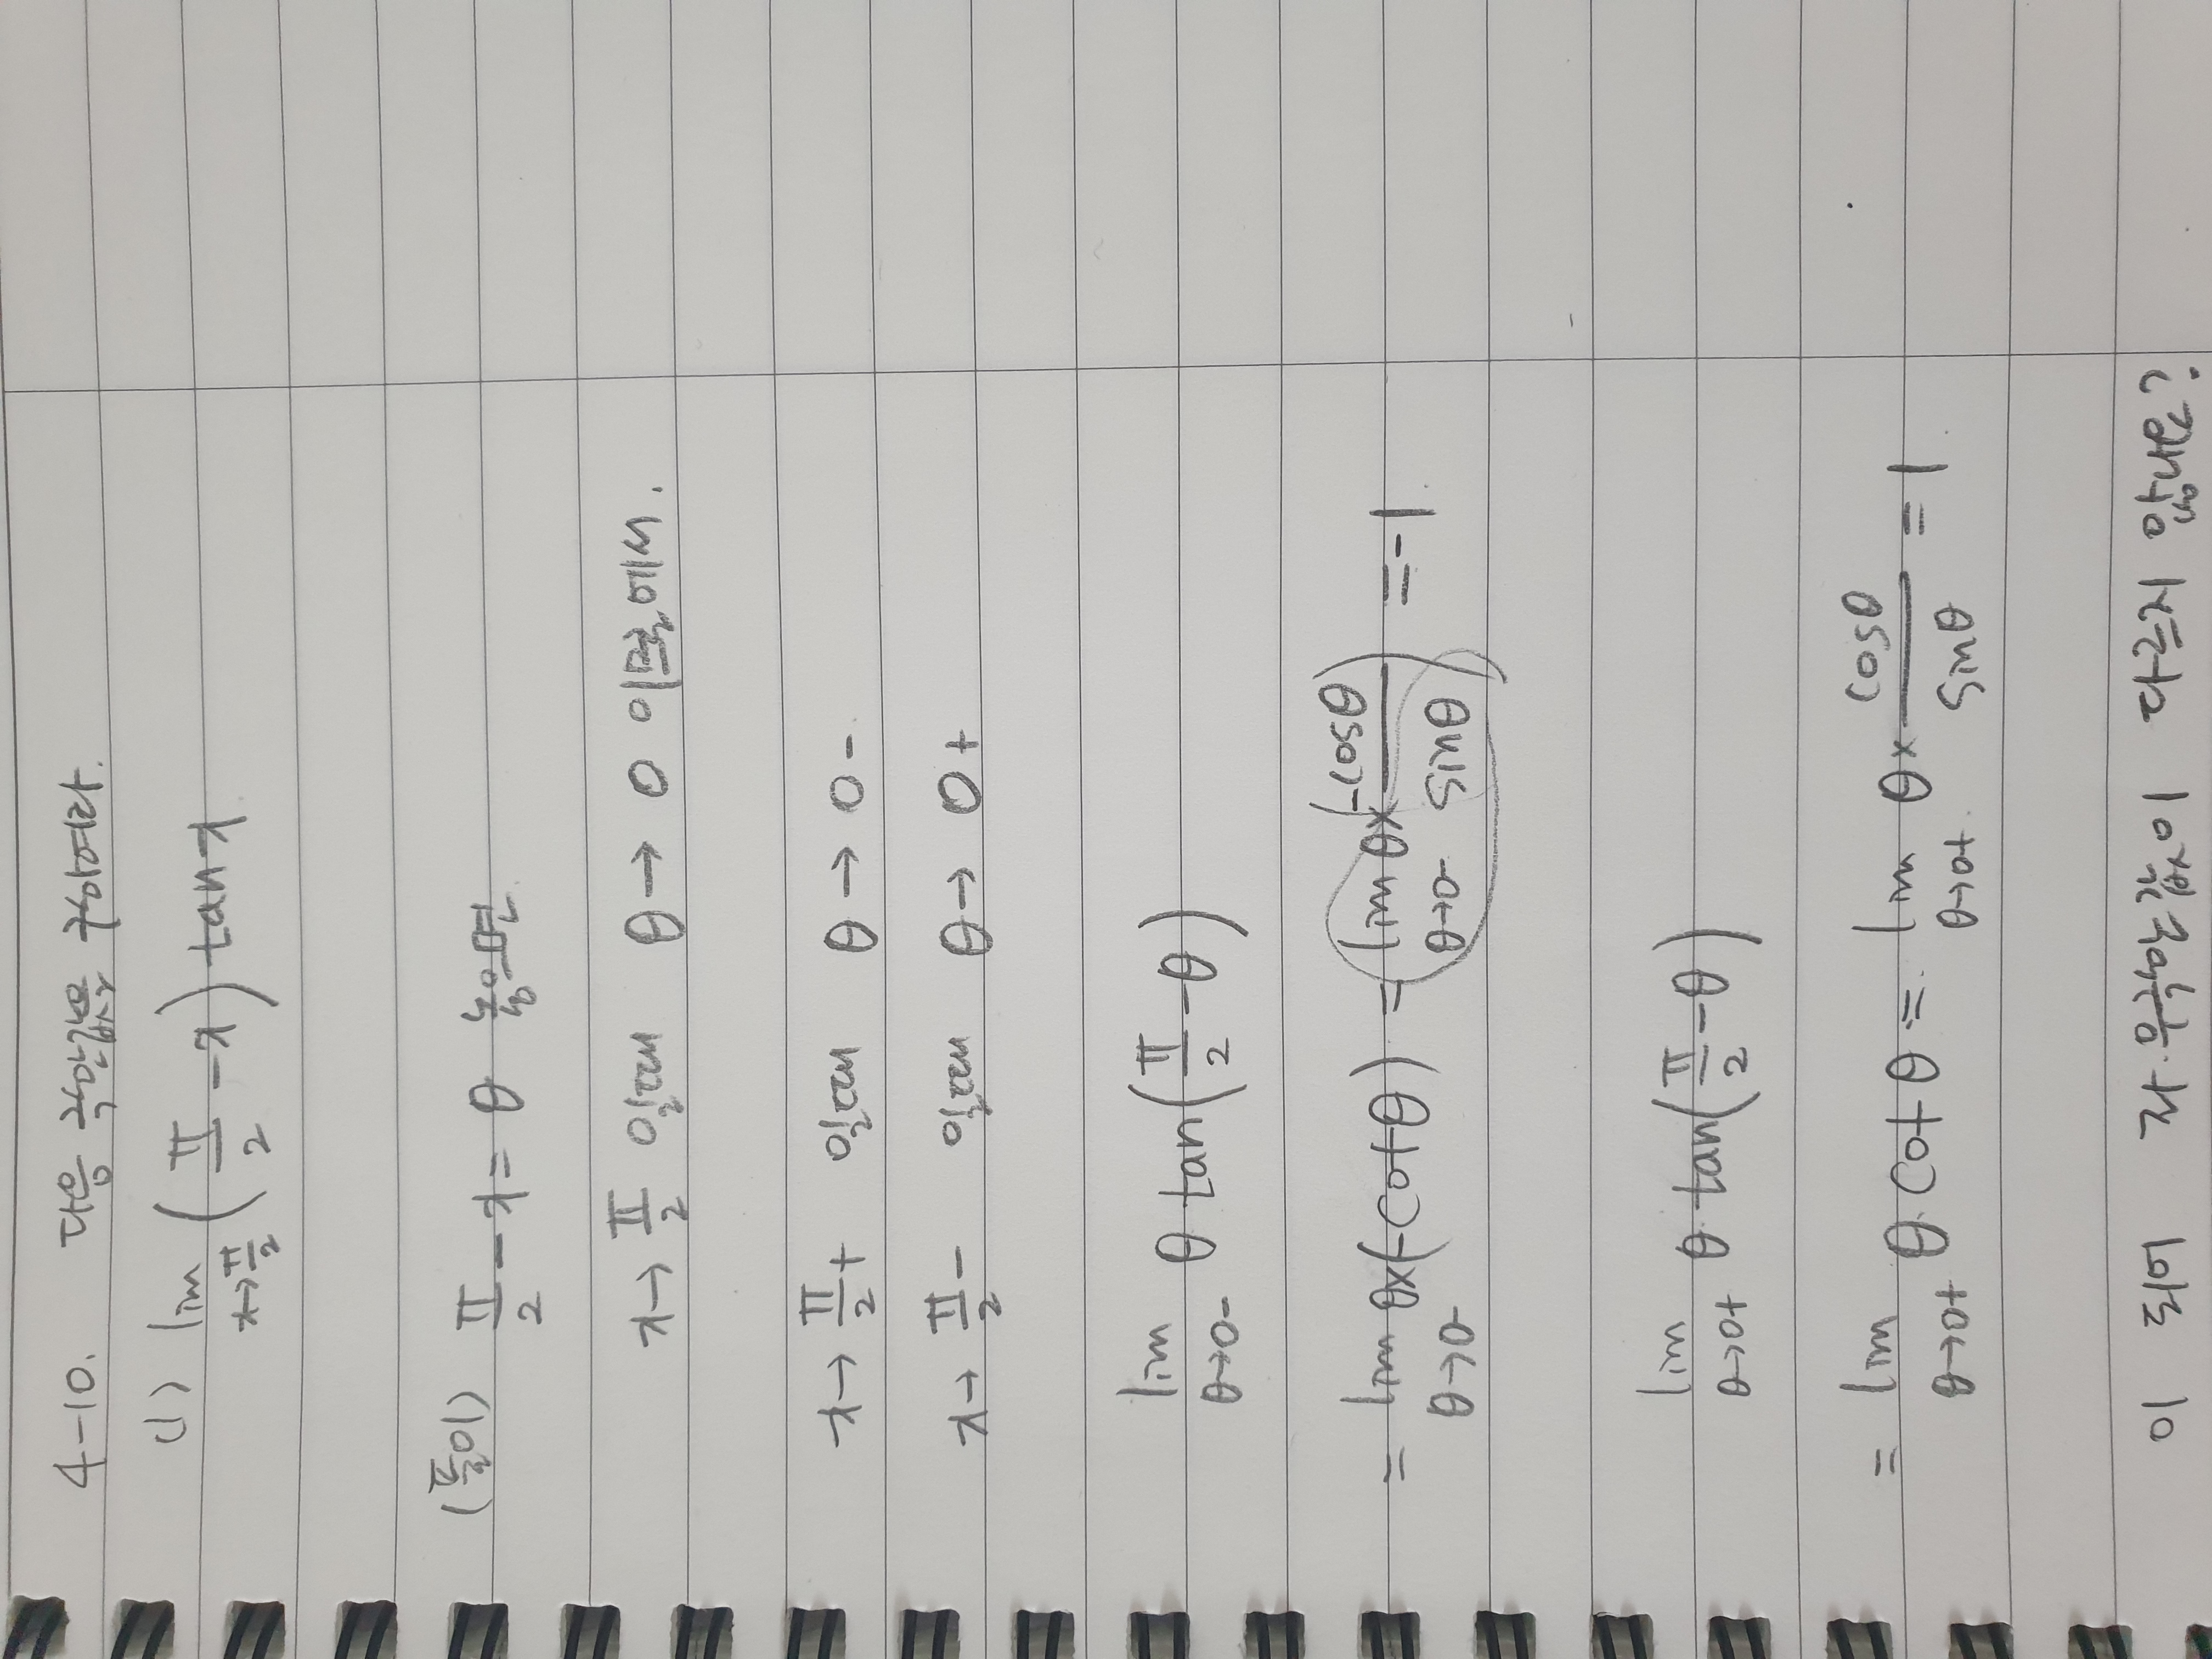 4-10. 다음 극한값을 구하여라.
(1) lim x→π/2 (π/2 - x) tan x
(풀이) π/2 - x = θ 놓으면
x → π/2 일때 θ → 0 이므로에서.
x → π/2+ 일때 θ → 0-
x → π/2- 일때 θ → 0+
lim θ→0- θ tan(π/2 - θ)
= lim θ→0- θ×(-cotθ) = lim θ→0- θ× (-cosθ)/sinθ = -1
lim θ→0+ θ·tan(π/2 - θ)
= lim θ→0+ θ·cotθ = lim θ→0+ θ× cosθ/sinθ = 1